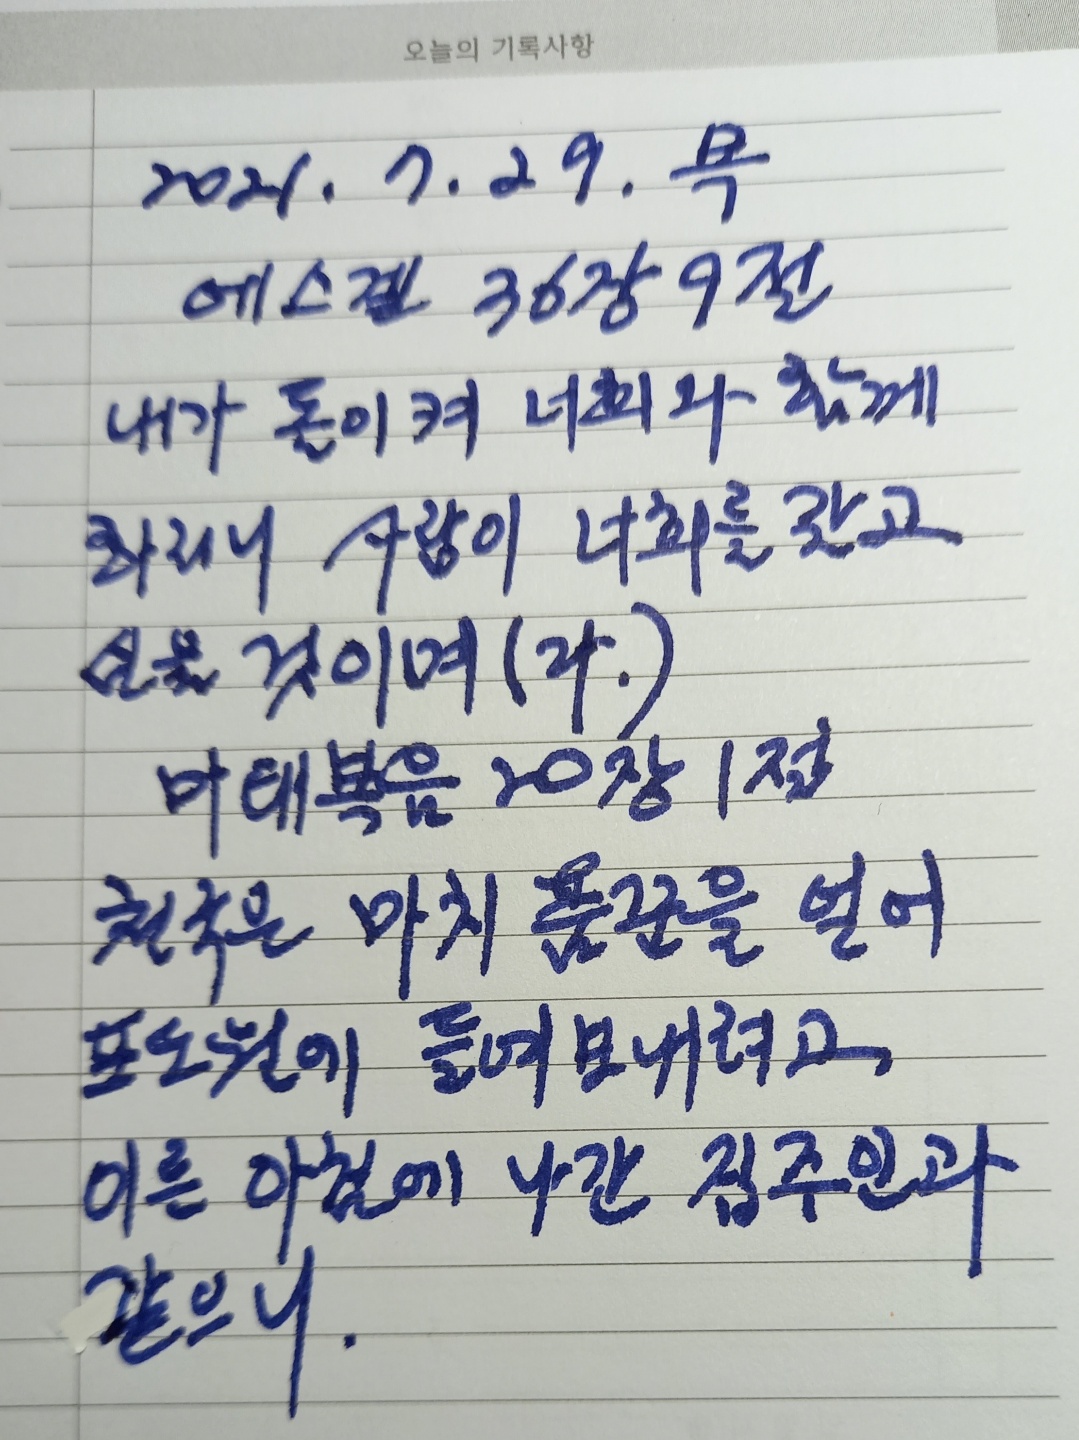 오늘의 기록사항
2021. 7. 29. 목
에스겔 36장 9절
내가 돌이켜 너희와 함께
하리니 사람이 너희를 갈고
심을 것이며 (라.)
마태복음 20장 1절
천국은 마치 품꾼을 얻어
포도원에 들여보내려고
이른 아침에 나간 집주인과
같으니.